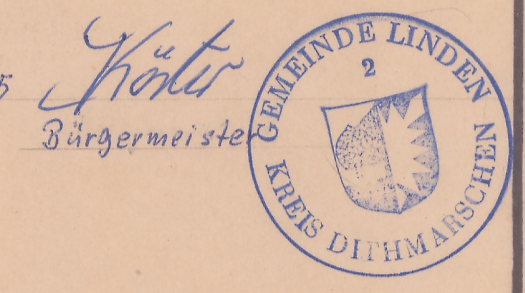 5
Köster
Bürgermeister
GEMEINDE LINDEN
2
KREIS DITHMARSCHEN